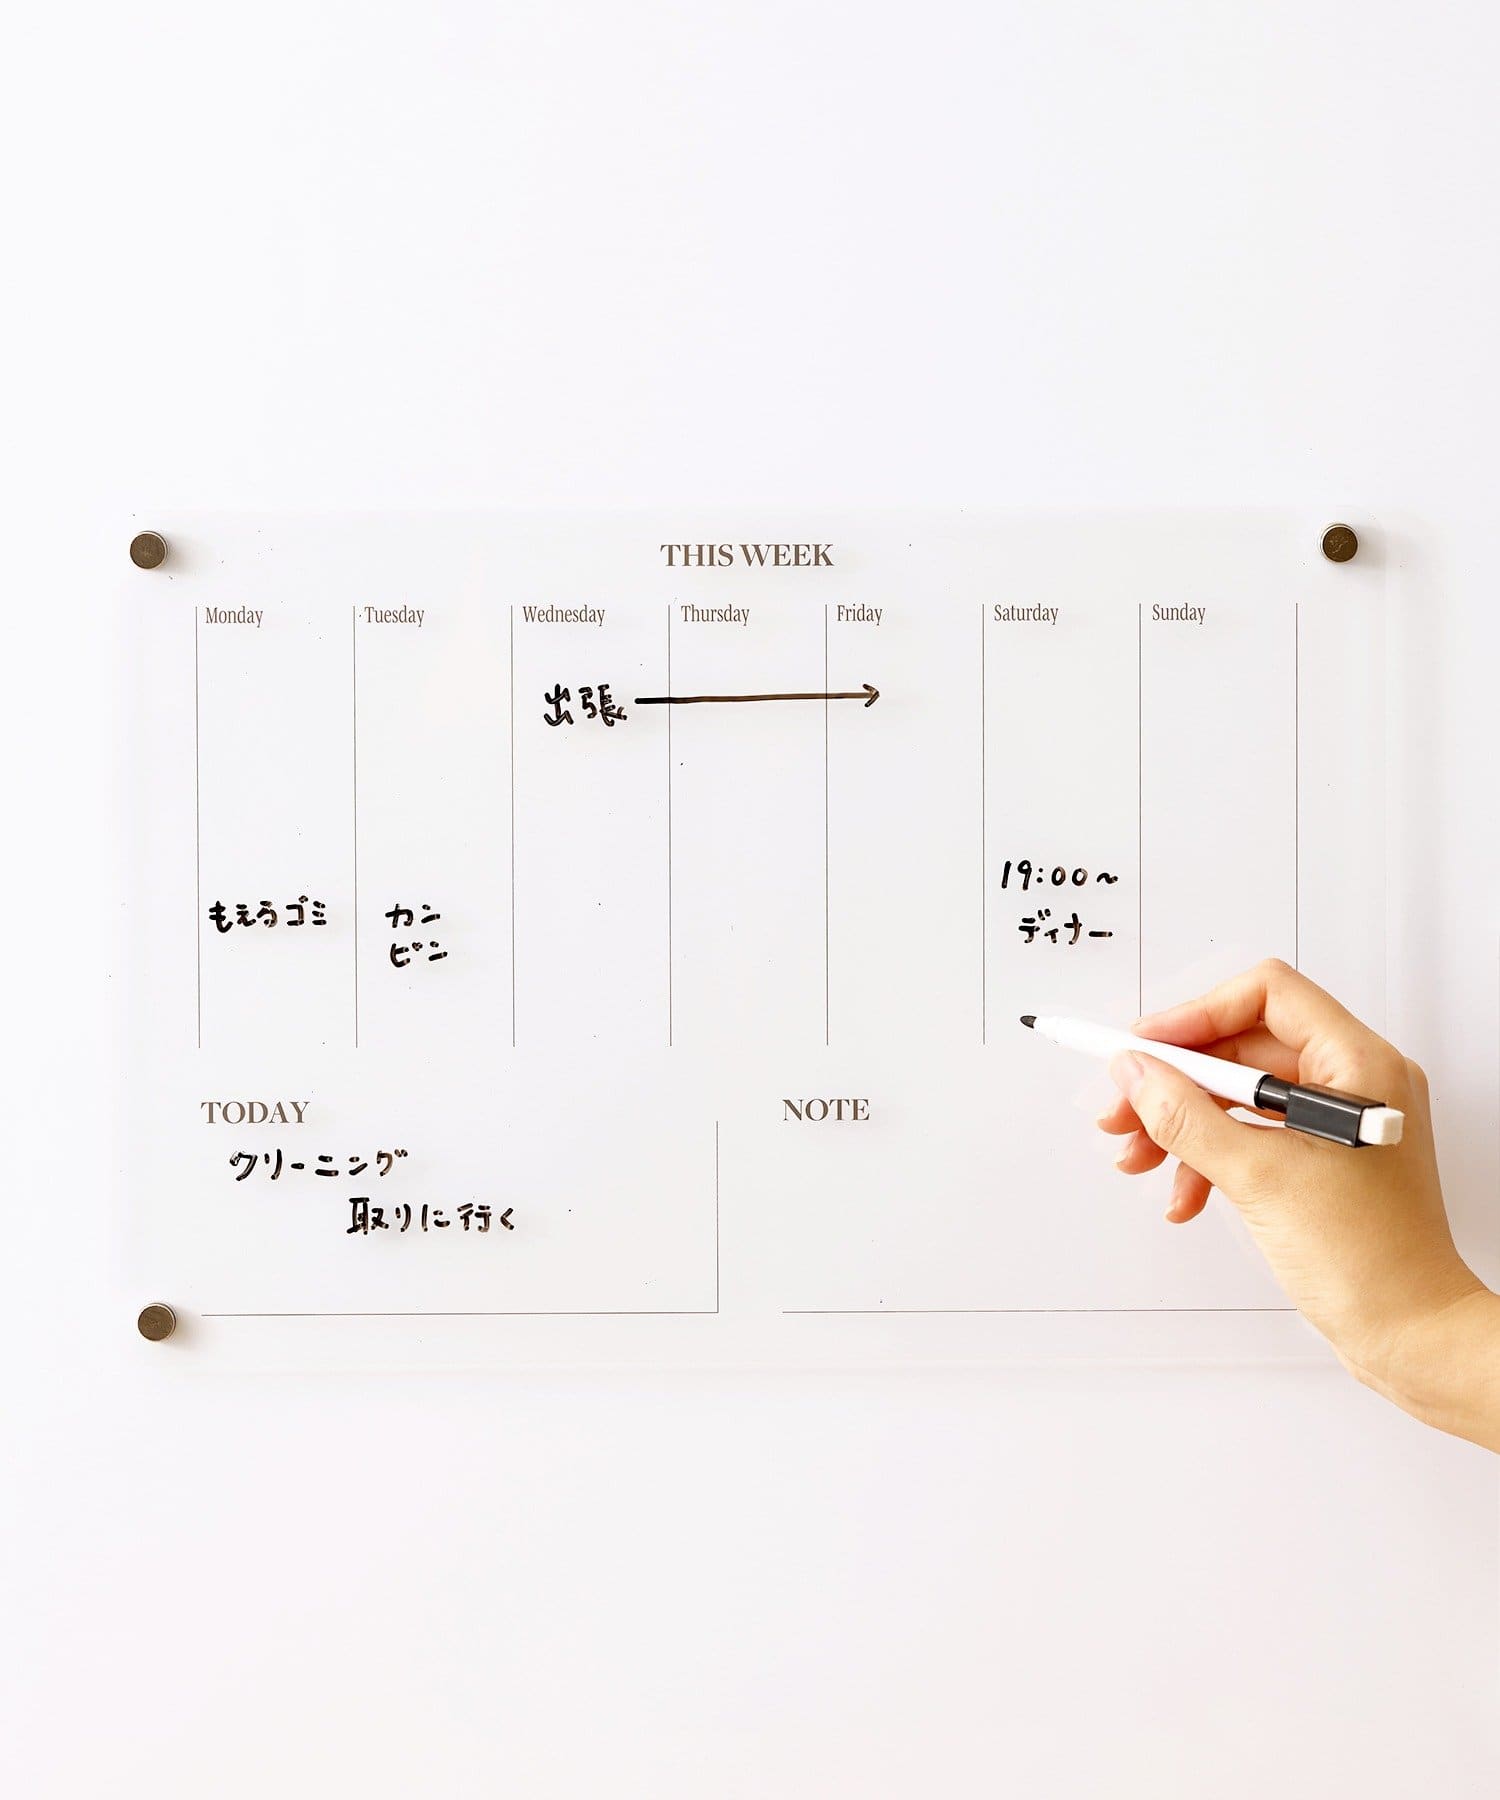 THIS WEEK
Monday
Tuesday
Wednesday
Thursday
Friday
Saturday
Sunday
出張
もえるゴミ
カン
ビン
19:00〜
ディナー
TODAY
クリーニング
取りに行く
NOTE